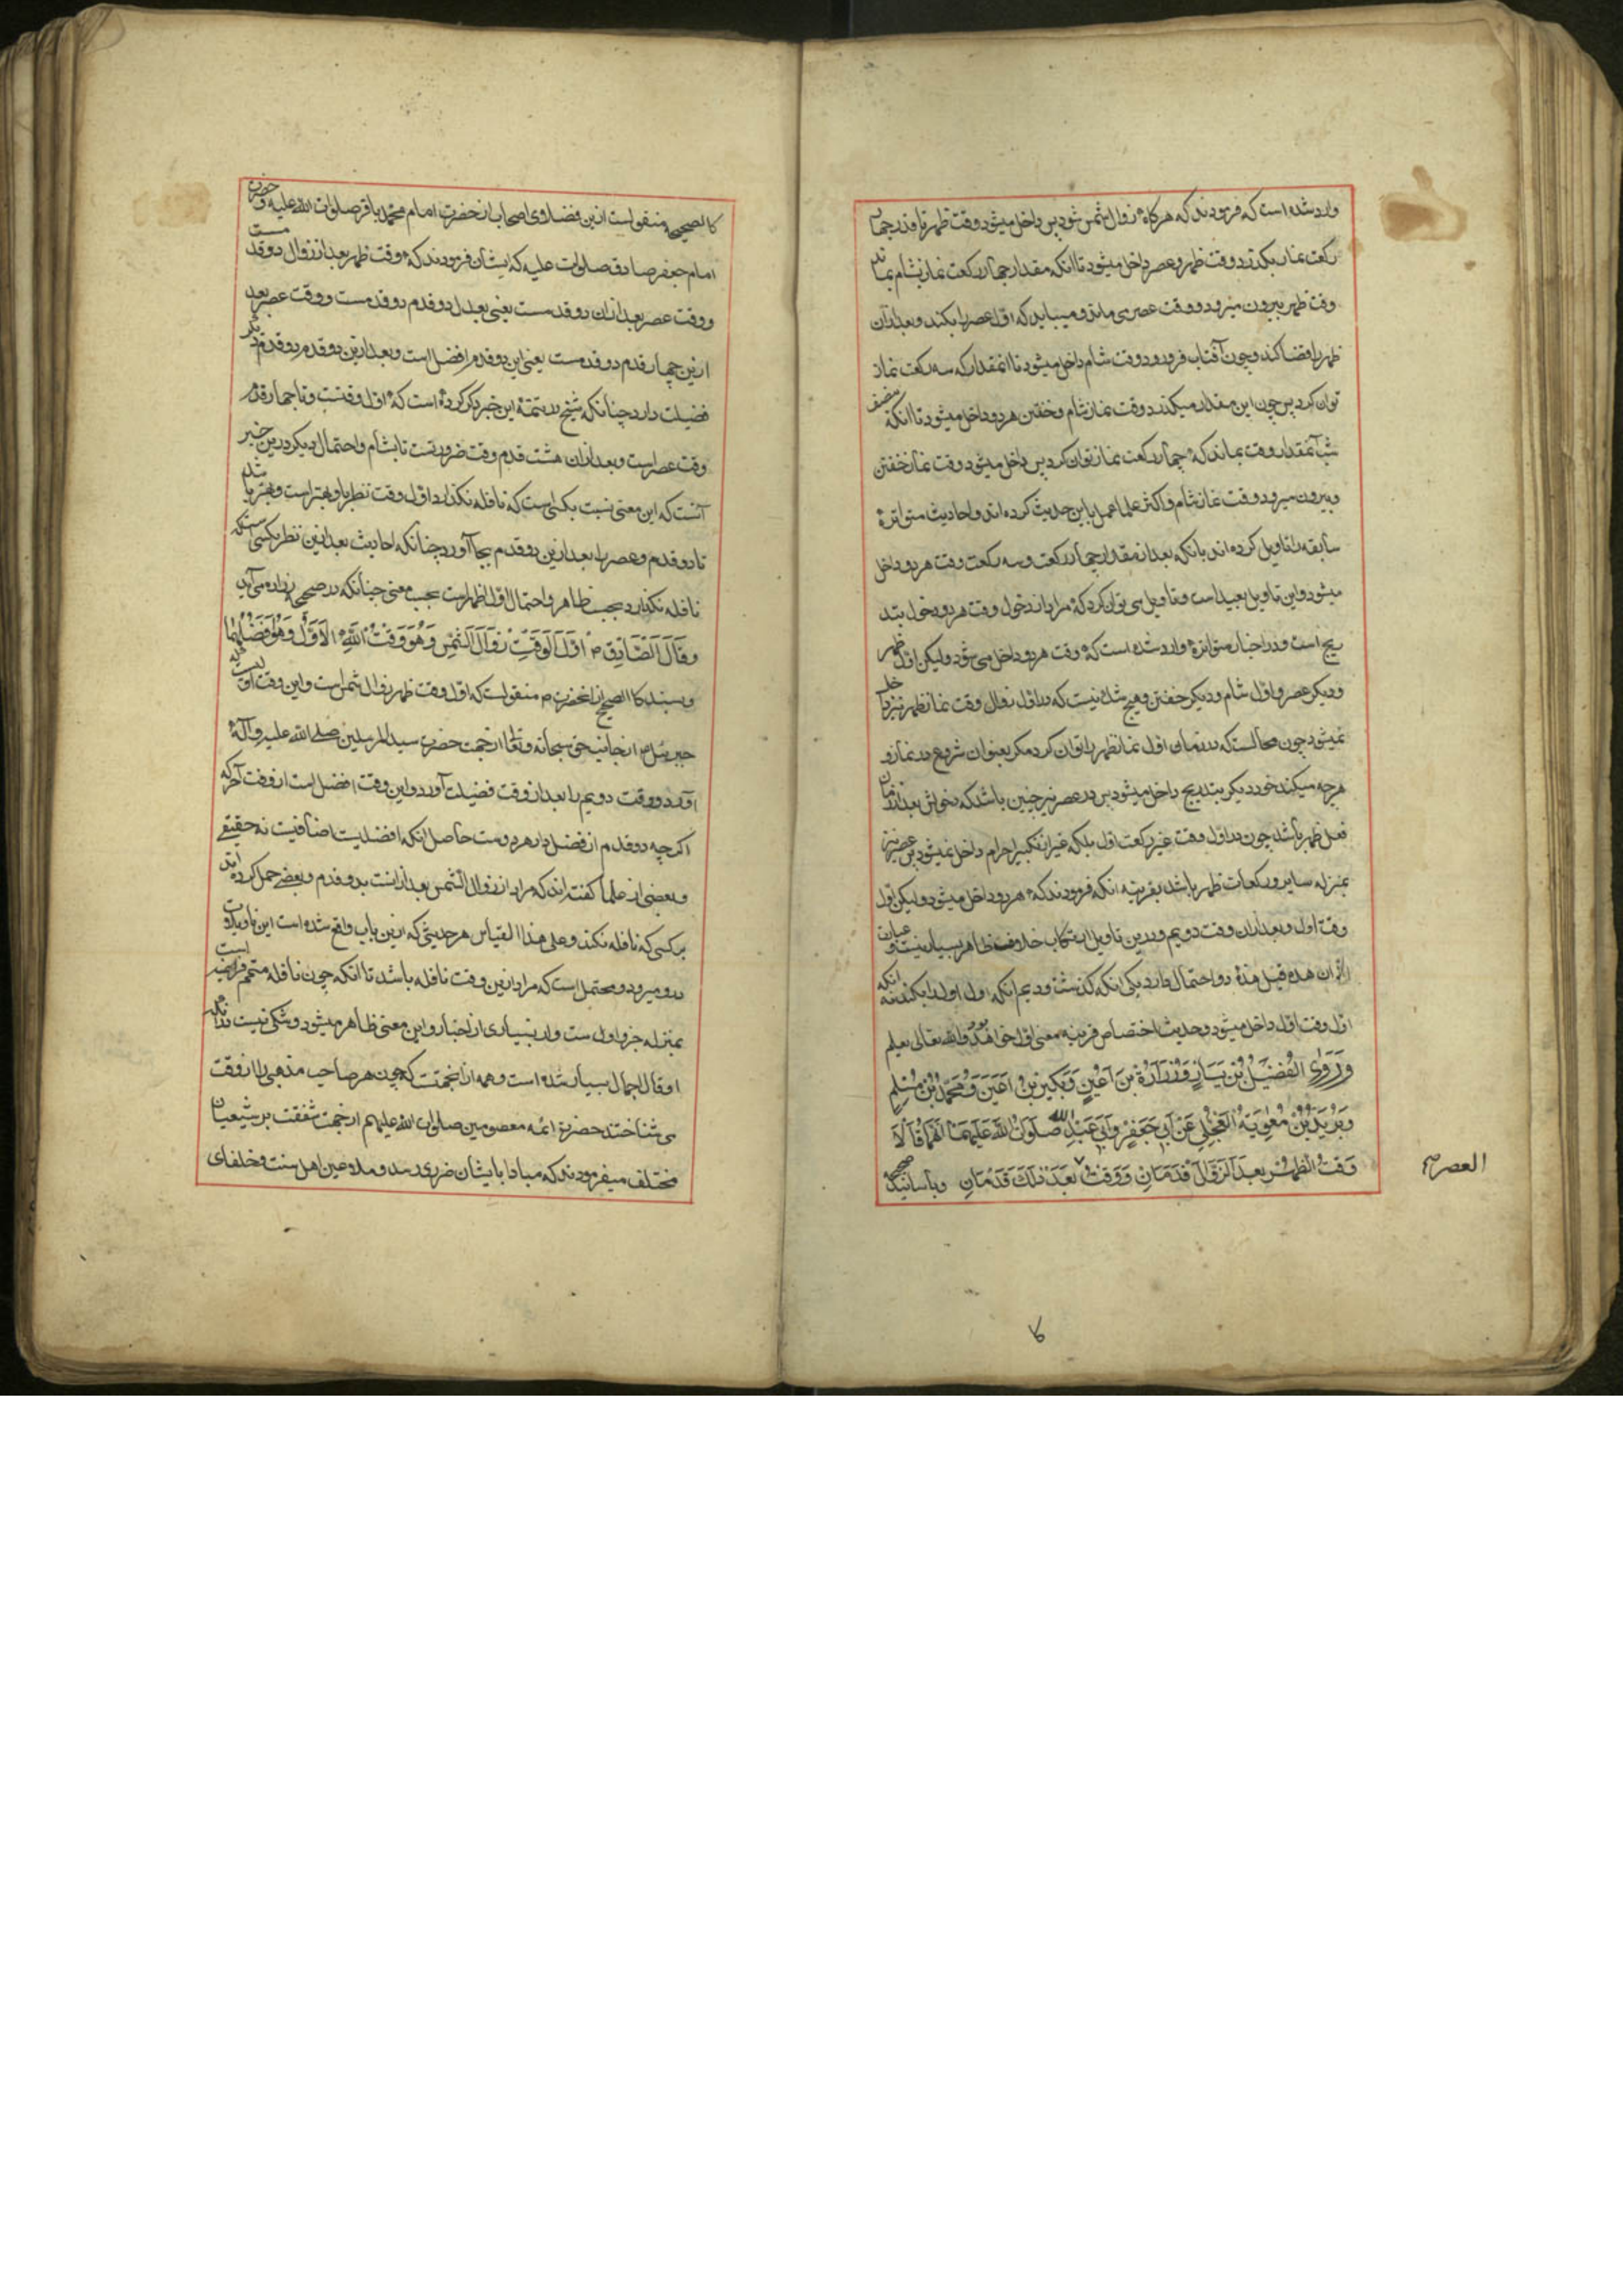 وارد شده است که فرمودند که هرکاه زوال شمس شود پس داخل میشود وقت ظهر تا قدر چهار
رکعت نماز بکذرد وقت ظهر و عصر داخل میشود تا انکه مقدار چهار رکعت نماز بشام بماند
وقت ظهر بیرون میرود و وقت عصر می ماند و میباید که اول عصر را بکند و بعد ازان
ظهر را قضا کند و چون آفتاب فرو رود وقت شام داخل میشود تا انمقدار که سه رکعت نماز
توان کرد پس چون این مقدار میکذرد وقت نماز شام و خفتن هر دو داخل میشود تا انکه نصف
شب آنمقدار وقت بماند که چهار رکعت نماز توان کرد پس داخل میشود وقت نماز خفتن
و بیرون میرود وقت نماز شام و اکثر علما عمل باین حدیث کرده اند و احادیث متواترهٔ
سابقه را تاویل کرده اند بانکه بعد از مقدار چهار رکعت و سه رکعت وقت هر دو داخل
میشود و این تاویل بعید است و تاویل می توان کرد که مراد از دخول وقت هر دو دخول بتد
ریج است و در اخبار متواتره وارد شده است که وقت هر دو داخل می شود ولیکن اول ظهر
و دیکر عصر و اول شام و دیکر خفتن و هیچ شک نیست که در اول زوال وقت نماز ظهر نیز داخل
نمیشود چون محالست که در زمان اول نماز ظهر را توان کرد مکر بعنوان شروع در نماز و
هرچه میکند خورد دیکر بتدریج داخل میشود پس در عصر نیز چنین باشد که دخولش بعد از زمان
فعل ظهر باشد چون در اول وقت غیر رکعت اول بلکه غیر از تکبیر احرام داخل نمیشود پس عصر نیز
بمنزله سایر رکعات ظهر باشد بقرینه انکه فرمودند که هر دو داخل میشود ولیکن اول
وقت اول و بعد ازان وقت دویم و درین تاویل ارتکاب خلاف ظاهر بسیار نیست و عبارت
الا ان هذه قبل هذه دو احتمال دارد یکی انکه کذشت و دیم انکه اول اول را بکند نه انکه
اول وقت اول داخل میشود و حدیث اختصاص قرینه معنی اول خواهد بود والله تعالی یعلم
وَرَوَى الفُضَيْلُ بْنُ يَسَارٍ وَزُرَارَةُ بْنُ أَعْيَنَ وَبُكَيْرُ بْنُ أَعْيَنَ وَمُحَمَّدُ بْنُ مُسْلِمٍ
وَبُرَيْدُ بْنُ مُعَاوِيَةَ الْعِجْلِي عَنْ أَبِي جَعْفَرٍ وَأَبِي عَبْدِ اللهِ صَلَوَاتُ اللهِ عَلَيْهِمَا أَنَّهُمَا قَالَا
وَقْتُ الظُّهْرِ بَعْدَ الزَّوَالِ قَدَمَانِ وَوَقْتُ بَعْدَ ذٰلِكَ قَدَمَانِ وباسانید صحیحه
العصر صح
کالصحیحه منقولست ازین فضلاء اصحاب از حضرت امام محمد باقر صلوات الله علیه و حضرت
امام جعفر صادق صلوات علیه که ایشان فرمودند که وقت ظهر بعد از زوال دو قدمست
و وقت عصر بعد ازان دو قدمست یعنی بعد از دو قدم دو قدمست و وقت عصر بعد
ازین چهار قدم دو قدمست یعنی این دو قدم افضل است و بعد ازین دو قدم دو قدم دیکر
فضیلت دارد چنانکه شیخ در تتمهٔ این خبر ذکر کرده است که اول وقتست و تا چهار قدم
وقت عصر است و بعد ازان هشت قدم وقت ضرورتست تا بشام و احتمال دیکر درین خبر
آنست که این معنی نسبت بکسی است که نافله نکذارد اول وقت نظر باو بهتر است و بهتر باشد
تا دو قدم و عصر را بعد ازین دو قدم بجا آورد چنانکه احادیث بعد ازین نظر بکسی هست که
نافله نکذارد بحسب ظاهر و احتمال اول اظهر است بحسب معنی چنانکه در صحیحه زراره می آید
وَقَالَ الصَّادِقُ ع أَوَّلُ الْوَقْتِ زَوَالُ الشَّمْسِ وَهُوَ وَقْتُ اللهِ الْأَوَّلُ وَهُوَ أَفْضَلُهُمَا
و بسند کالصحیح از انحضرت ص منقولست که اول وقت ظهر زوال شمس است و این وقت اولیست که
جبرئیل ع از جانب حق سبحانه و تعالی از جهت حضرت سید المرسلین صلی الله علیه وآله
آورد و وقت دویم را بعد از وقت فضیلت آورد و این وقت افضل است از وقت آخر که
اکرچه دو قدم از فضل دارد هر دو هست حاصل انکه افضلیت اضافیست نه حقیقی
و بعضی از علما کفته اند که مراد از زوال الشمس بعد از انست بدو قدم و بعضی حمل کرده اند
بر کسی که نافله نکند و علی هذا القیاس هر حدیثی که ازین باب واقع شده است این تاویلات
درو میرود و محتمل است که مراد ازین وقت نافله باشد تا انکه چون نافله متمم فرایض است
بمنزله جزو اول ست و از بسیاری از اخبار و این معنی ظاهر میشود و شکی نیست در انکه
اوقات اجمال بسیار شده است و همه از انجهتست که چون هر صاحب مذهبی را از وقت
می شناختند حضرت ائمه معصومین صلوات الله علیهم از جهت شفقت بر شیعیان
مختلف میفرمودند که مبادا بایشان ضرری رسد و ملاعین اهل سنت و خلفای